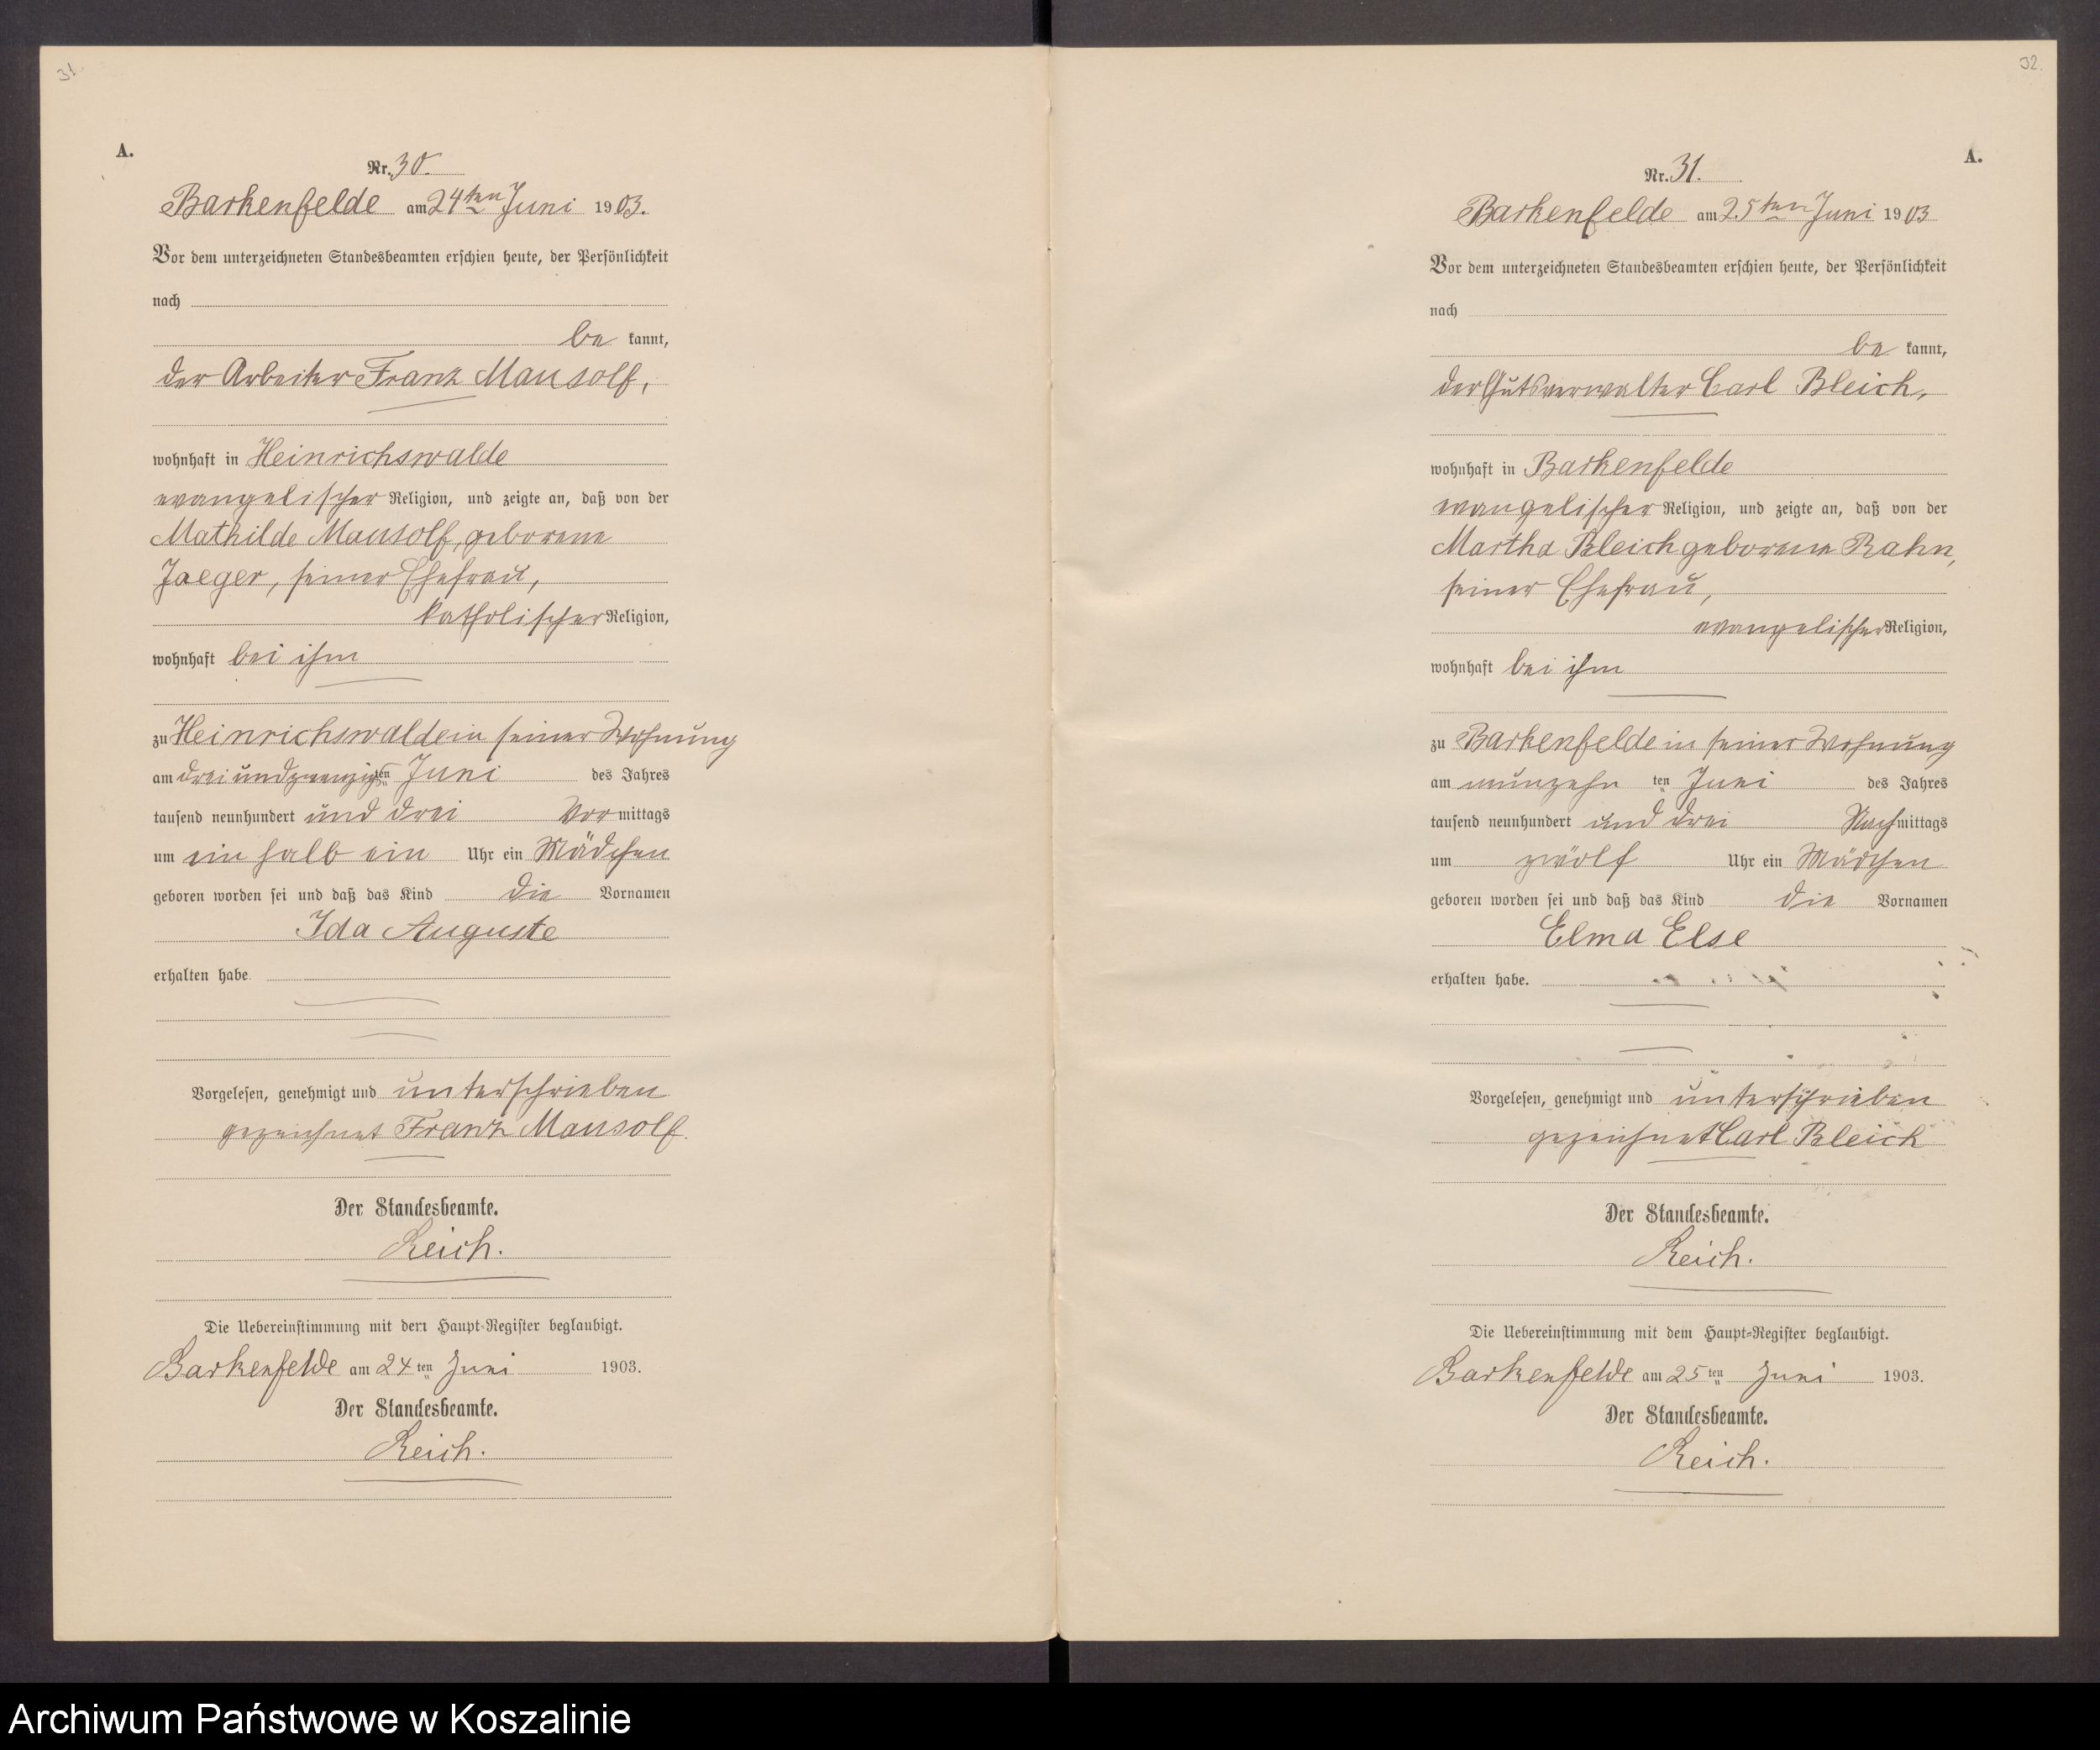 31.
A.
Nr. 30.
Barkenfelde am 24ten Juni 1903.
Vor dem unterzeichneten Standesbeamten erschien heute, der Persönlichkeit
nach
be kannt,
der Arbeiter Franz Mausolf,
wohnhaft in Heinrichswalde
evangelischer Religion, und zeigte an, daß von der
Mathilde Mausolf, geborene
Jaeger, seiner Ehefrau,
katholischer Religion,
wohnhaft bei ihm
zu Heinrichswalde in seiner Wohnung
am drei und zwanzigsten Juni des Jahres
tausend neunhundert und drei Vor mittags
um ein halb ein Uhr ein Mädchen
geboren worden sei und daß das Kind die Vornamen
Ida Auguste
erhalten habe
Vorgelesen, genehmigt und unterschrieben
gezeichnet Franz Mausolf.
Der Standesbeamte.
Reich.
Die Uebereinstimmung mit dem Haupt-Register beglaubigt.
Barkenfelde am 24ten Juni 1903.
Der Standesbeamte.
Reich.
32.
A.
Nr. 31.
Barkenfelde am 25ten Juni 1903
Vor dem unterzeichneten Standesbeamten erschien heute, der Persönlichkeit
nach
be kannt,
der Gutsverwalter Carl Bleich,
wohnhaft in Barkenfelde
evangelischer Religion, und zeigte an, daß von der
Martha Bleich geborene Rahn,
seiner Ehefrau,
evangelischer Religion,
wohnhaft bei ihm
zu Barkenfelde in seiner Wohnung
am neunzehn ten Juni des Jahres
tausend neunhundert und drei Nach mittags
um zwölf Uhr ein Mädchen
geboren worden sei und daß das Kind die Vornamen
Elma Else
erhalten habe.
Vorgelesen, genehmigt und unterschrieben
gezeichnet Carl Bleich
Der Standesbeamte.
Reich.
Die Uebereinstimmung mit dem Haupt-Register beglaubigt.
Barkenfelde am 25ten Juni 1903.
Der Standesbeamte.
Reich.
Archiwum Państwowe w Koszalinie